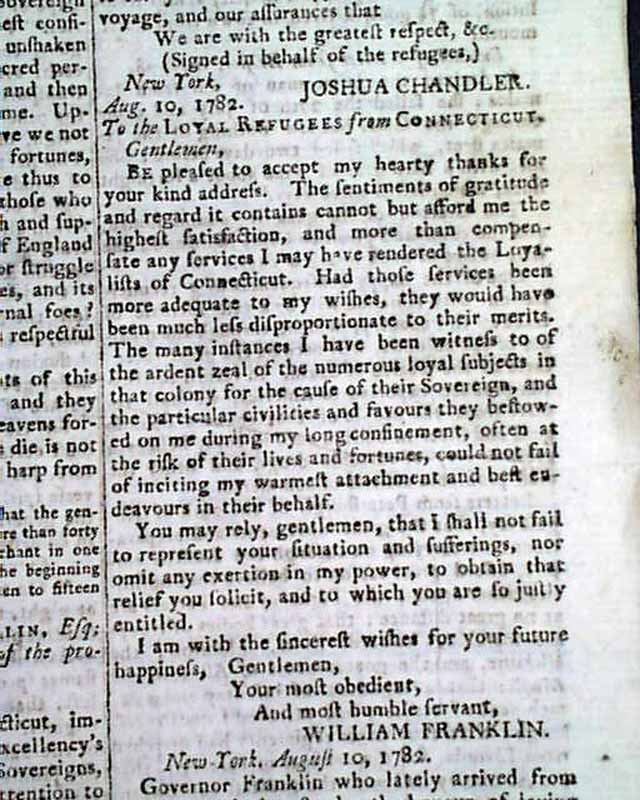 Sovereign
est confi-
unshaken
cred per-
and then
me. Up-
ve we not
fortunes,
e thus to
those who
h and sup-
f England
or ſtruggle
es, and its
rnal foes?
reſpectful
ts of this
and they
eavens for-
die is not
harp from
hat the gen-
re than forty
chant in one
he beginning
en to fifteen
LIN, Eſq;
of the pro-
cticut, im-
xcellency's
Sovereigns,
ttention to
voyage, and our aſſurances that
We are with the greateſt reſpect, &c.
(Signed in behalf of the refugees,)
New York, JOSHUA CHANDLER.
Aug. 10, 1782.
To the LOYAL REFUGEES from CONNECTICUT.
Gentlemen,
BE pleaſed to accept my hearty thanks for
your kind addreſs. The ſentiments of gratitude
and regard it contains cannot but afford me the
higheſt ſatisfaction, and more than compen-
ſate any ſervices I may have rendered the Loya-
liſts of Connecticut. Had thoſe ſervices been
more adequate to my wiſhes, they would have
been much leſs diſproportionate to their merits.
The many inſtances I have been witneſs to of
the ardent zeal of the numerous loyal ſubjects in
that colony for the cauſe of their Sovereign, and
the particular civilities and favours they beſtow-
ed on me during my long confinement, often at
the riſk of their lives and fortunes, could not fail
of inciting my warmeſt attachment and beſt en-
deavours in their behalf.
You may rely, gentlemen, that I ſhall not fail
to repreſent your ſituation and ſufferings, nor
omit any exertion in my power, to obtain that
relief you ſolicit, and to which you are ſo juſtly
entitled.
I am with the ſincereſt wiſhes for your future
happineſs, Gentlemen,
Your moſt obedient,
And moſt humble ſervant,
WILLIAM FRANKLIN.
New-York, Auguſt 10, 1782.
Governor Franklin who lately arrived from